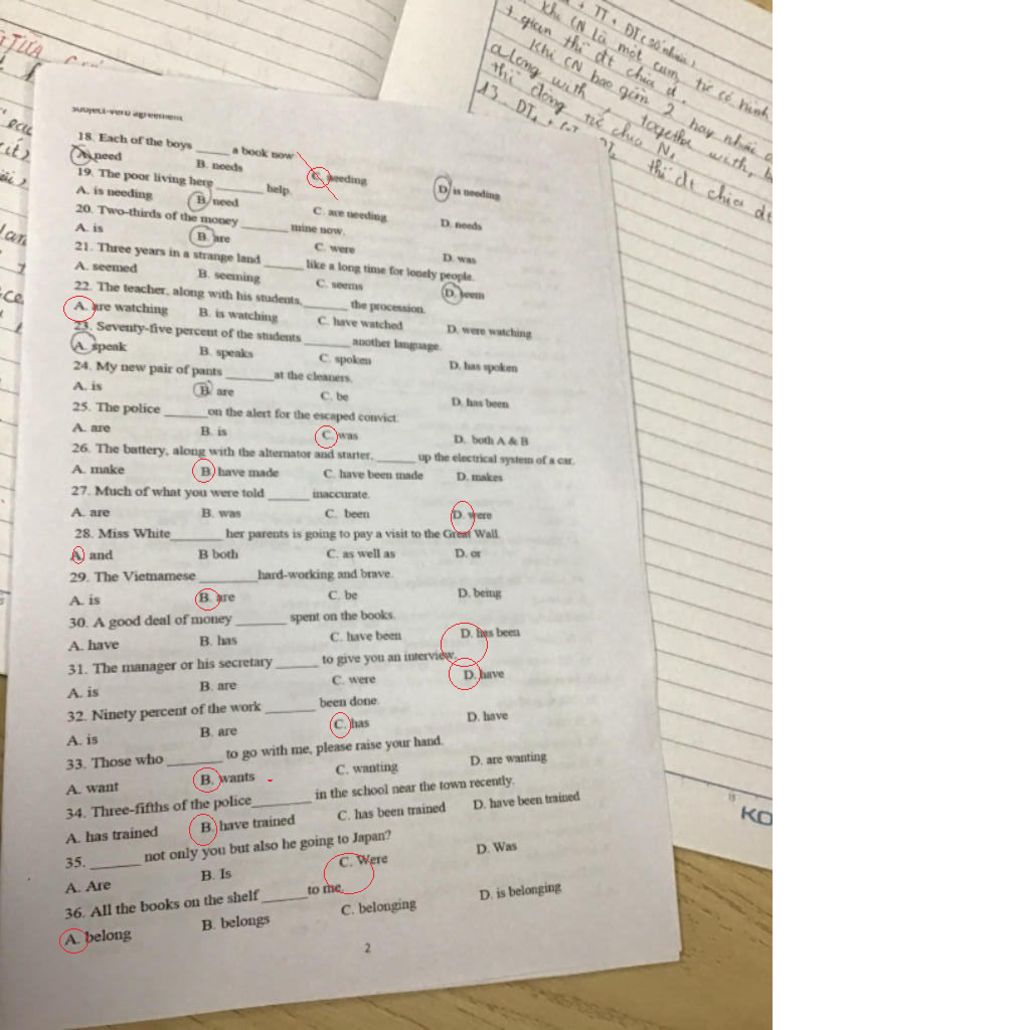 Subject-verb agreement
18. Each of the boys _____ a book now
A. need B. needs C. needing D. is needing
19. The poor living here _______ help.
A. is needing B. need C. are needing D. needs
20. Two-thirds of the money _______ mine now.
A. is B. are C. were D. was
21. Three years in a strange land ______ like a long time for lonely people.
A. seemed B. seeming C. seems D. seem
22. The teacher, along with his students,_______ the procession.
A. are watching B. is watching C. have watched D. were watching
23. Seventy-five percent of the students _______ another language.
A. speak B. speaks C. spoken D. has spoken
24. My new pair of pants _______at the cleaners.
A. is B. are C. be D. has been
25. The police ______on the alert for the escaped convict.
A. are B. is C. was D. both A & B
26. The battery, along with the alternator and starter, ______ up the electrical system of a car.
A. make B. have made C. have been made D. makes
27. Much of what you were told ______ inaccurate.
A. are B. was C. been D. were
28. Miss White_______ her parents is going to pay a visit to the Great Wall.
A. and B both C. as well as D. or
29. The Vietnamese ________hard-working and brave.
A. is B. are C. be D. being
30. A good deal of money _______ spent on the books.
A. have B. has C. have been D. has been
31. The manager or his secretary ______ to give you an interview.
A. is B. are C. were D. have
32. Ninety percent of the work _______ been done.
A. is B. are C. has D. have
33. Those who ________ to go with me, please raise your hand.
A. want B. wants C. wanting D. are wanting
34. Three-fifths of the police________ in the school near the town recently.
A. has trained B. have trained C. has been trained D. have been trained
35. _______ not only you but also he going to Japan?
A. Are B. Is C. Were D. Was
36. All the books on the shelf ______to me.
A. belong B. belongs C. belonging D. is belonging
2
+ TT + DT (số nhiều)
Khi CN là một cụm từ có
+ gian thì đt chia
Khi CN bao gồm 2 hay nhiều
along with, together with,
thì động từ chia N1
13. DT1
thì đt chia
KO